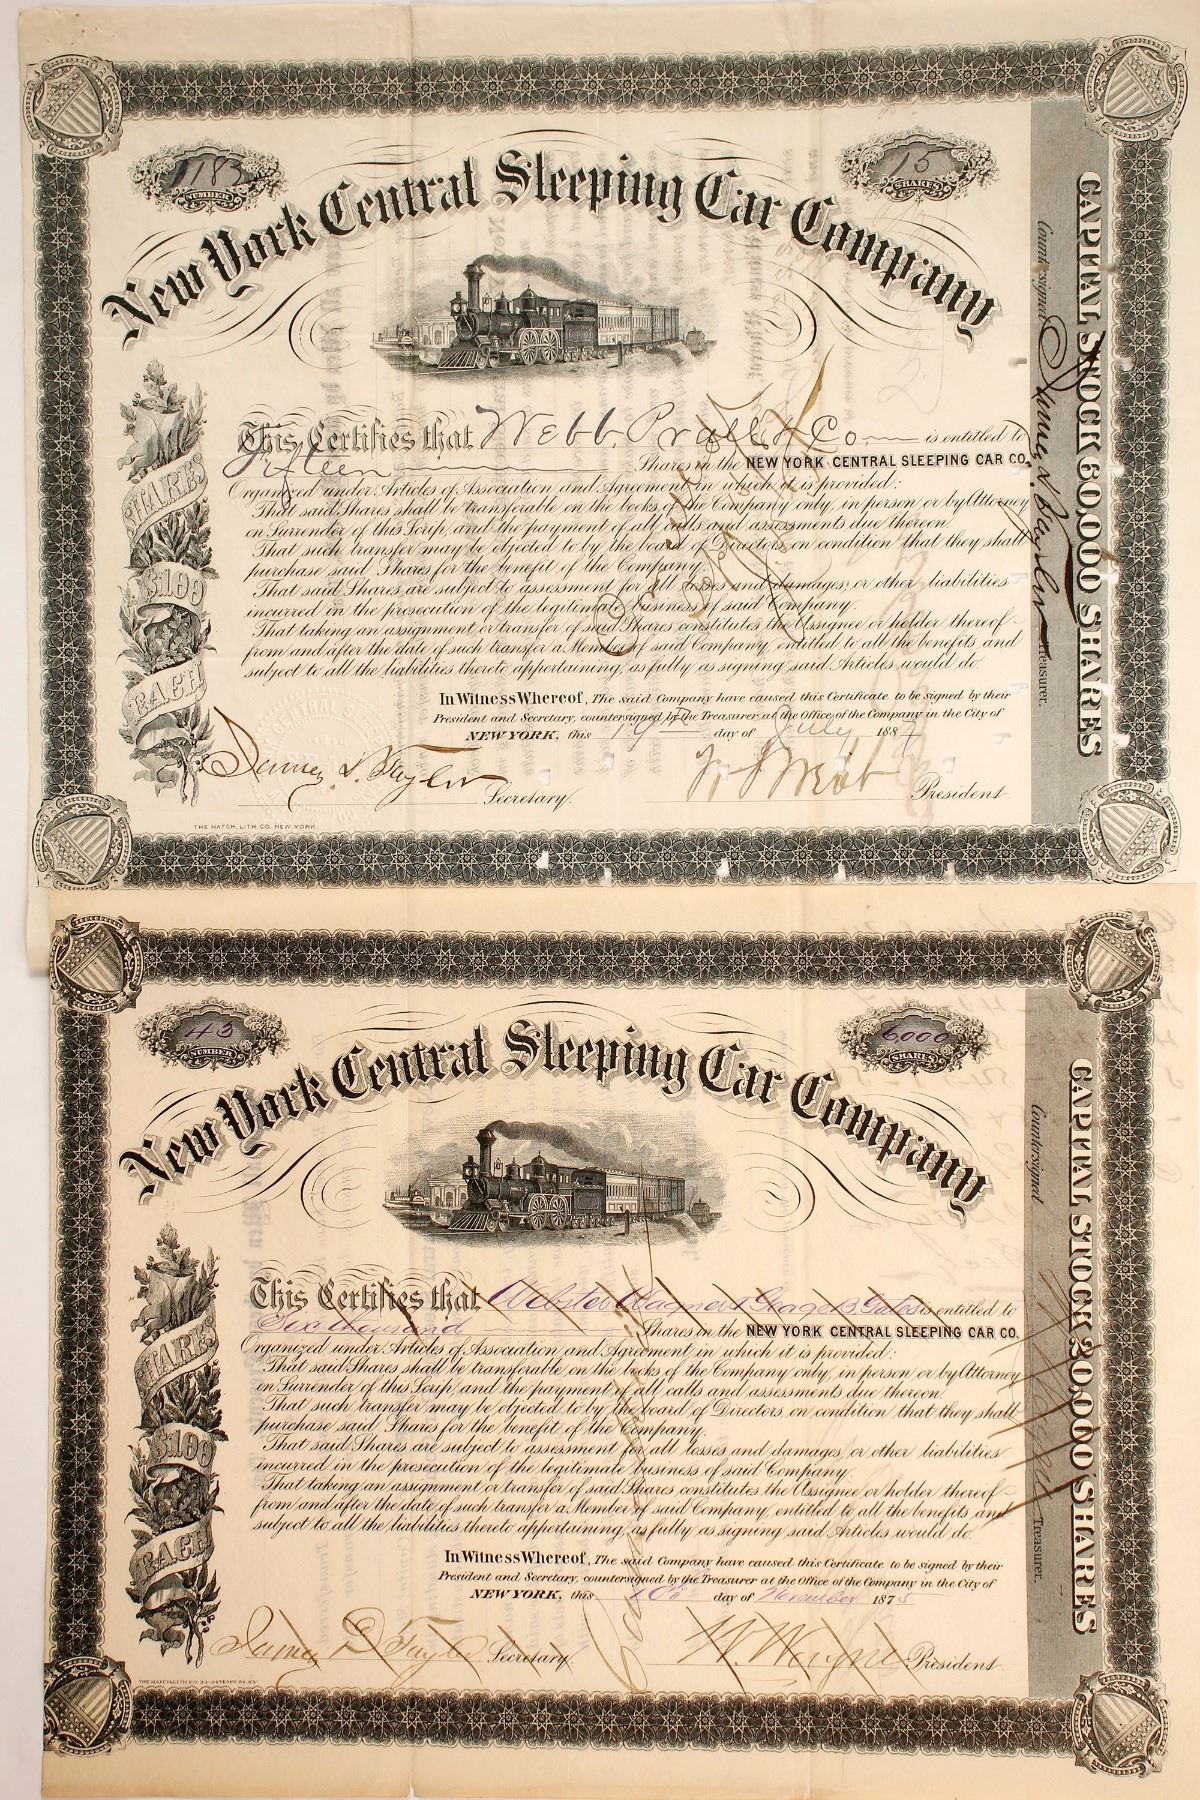 1183
NUMBER
15
SHARES
New York Central Sleeping Car Company
CAPITAL STOCK 60,000 SHARES
Countersigned
James D. Taylor
Treasurer.
SHARES
$100
EACH
This Certifies that Webb, Prall & Co is entitled to
Fifteen Shares in the NEW YORK CENTRAL SLEEPING CAR CO.
Organized under Articles of Association and Agreement in which it is provided:
That said Shares shall be transferable on the books of the Company only, in person or by Attorney
on Surrender of this Scrip and the payment of all calls and assessments due thereon.
That such transfer may be objected to by the board of Directors, on condition that they shall
purchase said Shares for the benefit of the Company.
That said Shares are subject to assessment for all losses and damages, or other liabilities
incurred in the prosecution of the legitimate business of said Company.
That taking an assignment or transfer of said Shares constitutes the Assignee or holder thereof
from and after the date of such transfer a Member of said Company, entitled to all the benefits and
subject to all the liabilities thereto appertaining, as fully as signing said Articles would do.
In Witness Whereof, The said Company have caused this Certificate to be signed by their
President and Secretary, countersigned by the Treasurer at the Office of the Company in the City of
NEW YORK, this 19th day of July 1887
James D. Taylor Secretary. W S Webb President
THE HATCH LITH. CO. NEW YORK.
43
NUMBER
6000
SHARES
New York Central Sleeping Car Company
CAPITAL STOCK 20,000 SHARES
Countersigned
Treasurer.
SHARES
$100
EACH
This Certifies that Webster Wagner & George B Gates is entitled to
Six thousand Shares in the NEW YORK CENTRAL SLEEPING CAR CO.
Organized under Articles of Association and Agreement in which it is provided:
That said Shares shall be transferable on the books of the Company only, in person or by Attorney
on Surrender of this Scrip and the payment of all calls and assessments due thereon.
That such transfer may be objected to by the board of Directors, on condition that they shall
purchase said Shares for the benefit of the Company.
That said Shares are subject to assessment for all losses and damages, or other liabilities
incurred in the prosecution of the legitimate business of said Company.
That taking an assignment or transfer of said Shares constitutes the Assignee or holder thereof
from and after the date of such transfer a Member of said Company, entitled to all the benefits and
subject to all the liabilities thereto appertaining, as fully as signing said Articles would do.
In Witness Whereof, The said Company have caused this Certificate to be signed by their
President and Secretary, countersigned by the Treasurer at the Office of the Company in the City of
NEW YORK, this 10th day of November 1875
James D Taylor Secretary. W. Wagner President